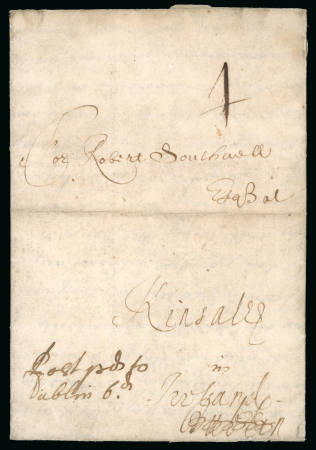 1
For Robert Southwell
Esq at
Kinsale
in
Ireland
Post pd to
Dublin 6d